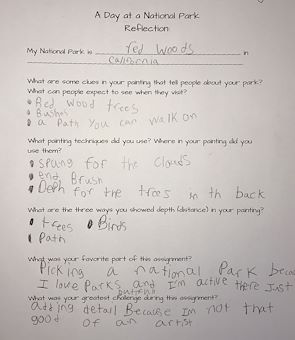 A Day at a National Park
Reflection:
My National Park is red woods in
California
What are some clues in your painting that tell people about your park?
What can people expect to see when they visit?
Red wood trees
Bushes
a Path you can walk on
What painting techniques did you use? Where in your painting did you
use them?
spung for the clouds
end Brush
Deph for the trees in th back
What are the three ways you showed depth (distance) in your painting?
trees Birds
Path
What was your favorite part of this assignment?
Picking a national Park becac
I love Parks and I'm active there Just
What was your greatest challenge during this assignment?
adding detail Because Im not that
good of an artist